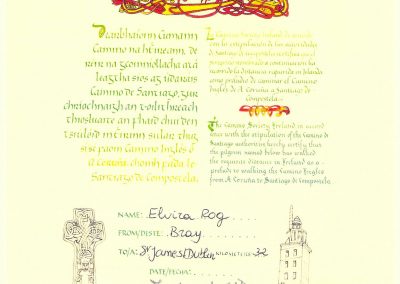 Dearbhaíonn Cumann
Camino na hÉireann, de
réir na gcoinníollacha atá
leagtha síos ag údaráis
Camino de Santiago, gur
chríochnaigh an t-oilithreach
thíosluaite an fhaid chuí den
tsiúlóid in Éirinn sular thug
sí/sé faoin Camino Inglés ó
A Coruña chomh fada le
Santiago de Compostela.
La Camino Society Ireland de acuerdo
con la estipulación de las autoridades
de Santiago de Compostela certifica que el
peregrino nombrado a continuación ha
recorrido la distancia requerida en Irlanda
como preludio de caminar el Camino
Inglés de A Coruña a Santiago de
Compostela.
The Camino Society Ireland in accord-
ance with the stipulation of the Camino de
Santiago authorities hereby certify that
the pilgrim named below has walked
the requisite distance in Ireland as a
prelude to walking the Camino Inglés
from A Coruña to Santiago de Compostela.
NAME: Elvira Rog
FROM/DESTE: Bray
TO/A: St James Dublin KILOMETERS: 32
DATE/FECHA: